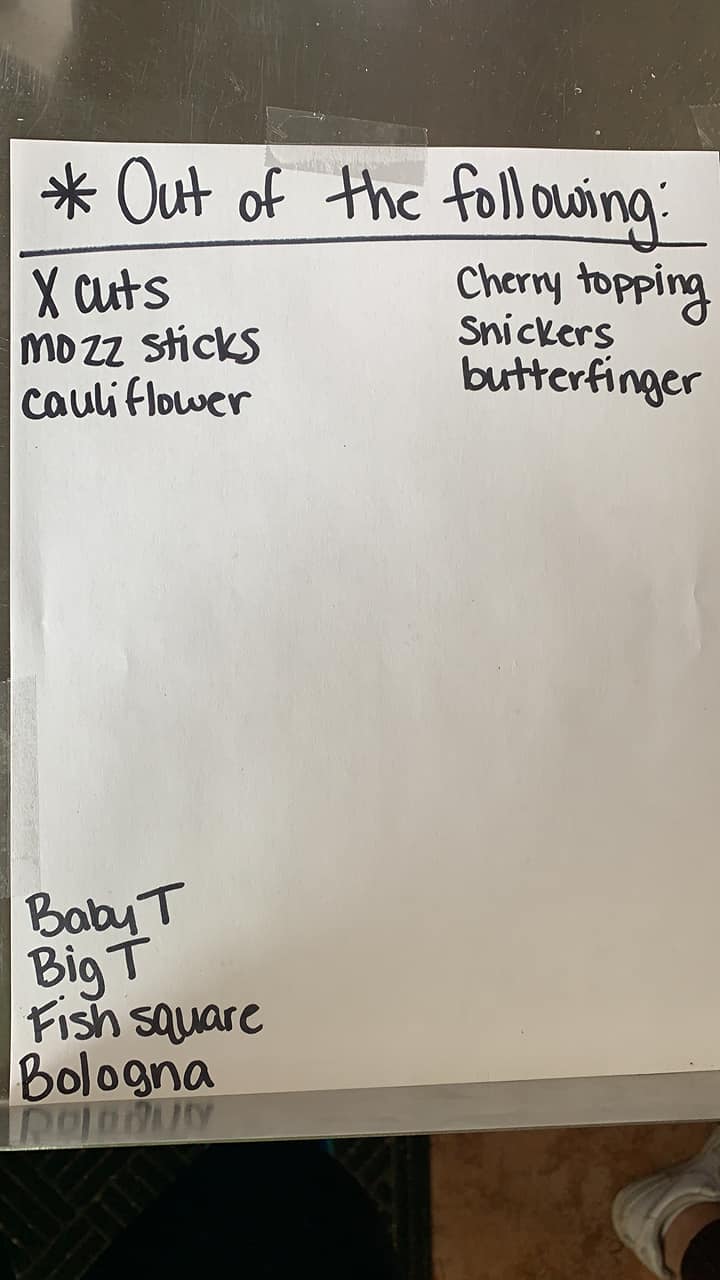 * Out of the following:
X cuts
mozz sticks
cauliflower
Cherry topping
Snickers
butterfinger
Baby T
Big T
Fish square
Bologna